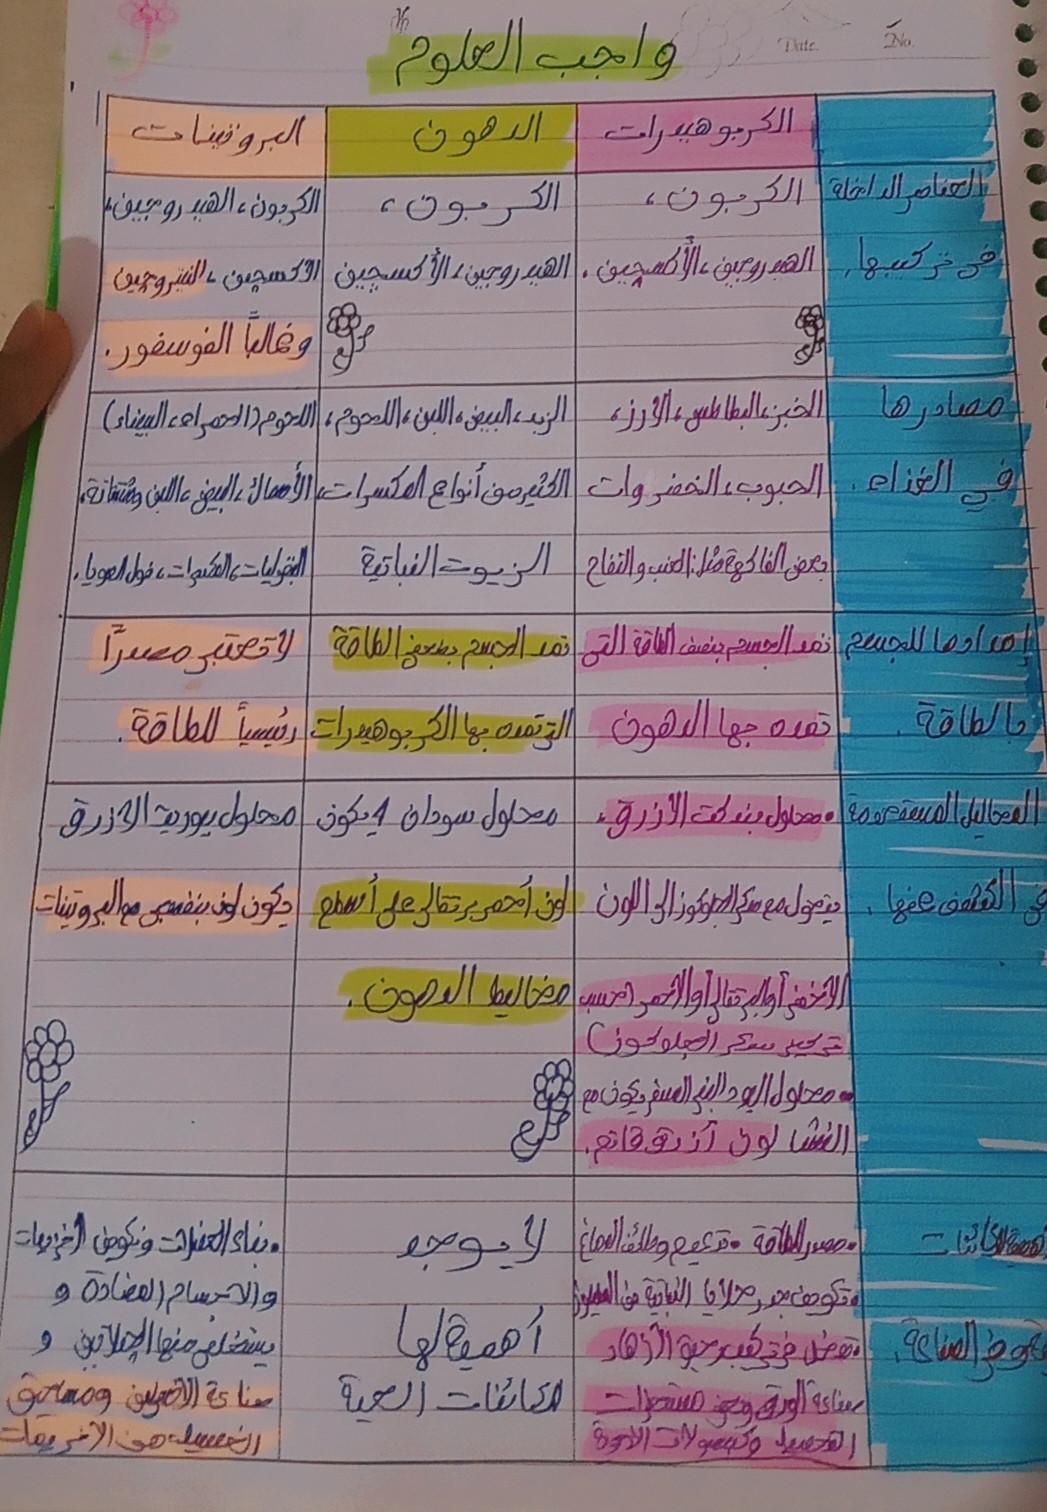 No.
Date.
واجب العلوم
الكربوهيدرات
الدهون
البروتينات
العناصر الداخلة
في تركيبها.
الكربون،
الهيدروجين، الأكسجين.
الكربون،
الهيدروجين، الأكسجين
الكربون، الهيدروجين،
الأكسجين، النيتروجين
وغالباً الفوسفور.
مصادرها
في الغذاء.
الخبز، البطاطس، الأرز،
الحبوب، الخضروات
بعض الفاكهة مثل: العنب والتفاح
الزبد، البيض، اللبن، اللحوم،
الكثير من أنواع المكسرات،
الزيوت النباتية
اللحوم (الحمراء، البيضاء)
الأسماك، البيض، اللبن ومشتقاته،
البقوليات، المكسرات، فول الصويا.
إمدادها للجسم
بالطاقة.
تمد الجسم بنصف الطاقة التي
تمده بها الدهون
تمد الجسم بضعف الطاقة
التي تمده بها الكربوهيدرات
لا تعتبر مصدراً
رئيسياً للطاقة.
المحاليل المستخدمة
في الكشف عنها.
• محلول بندكت الأزرق،
يتحول مع سكر الجلوكوز إلى اللون
الأخضر أو البرتقالي أو الأحمر (حسب
تركيز سكر الجلوكوز)
• محلول اليود البني المصفر يكون مع
النشا لون أزرق قاتم.
محلول سودان 4 يكون
لون أحمر برتقالي على أسطح
مخاليط الدهون.
محلول بيوريت الأزرق
يكون لون بنفسجي مع البروتينات
• مصدر للطاقة • تدعيم وظائف الدماغ
• تكوين جدر خلايا النباتية من السليلوز
• تدخل في تركيب رحيق الأزهار
صناعة الورق وبعض مستحضرات
التجميل وكبسولات الأدوية
لا يوجد
أهمية لها
للكائنات الحية
• بناء العضلات وتكوين الإنزيمات
والأجسام المضادة و
يستخلص منها الجيلاتين و
صناعة الأنسولين ومساحيق
الغسيل من الإنزيمات